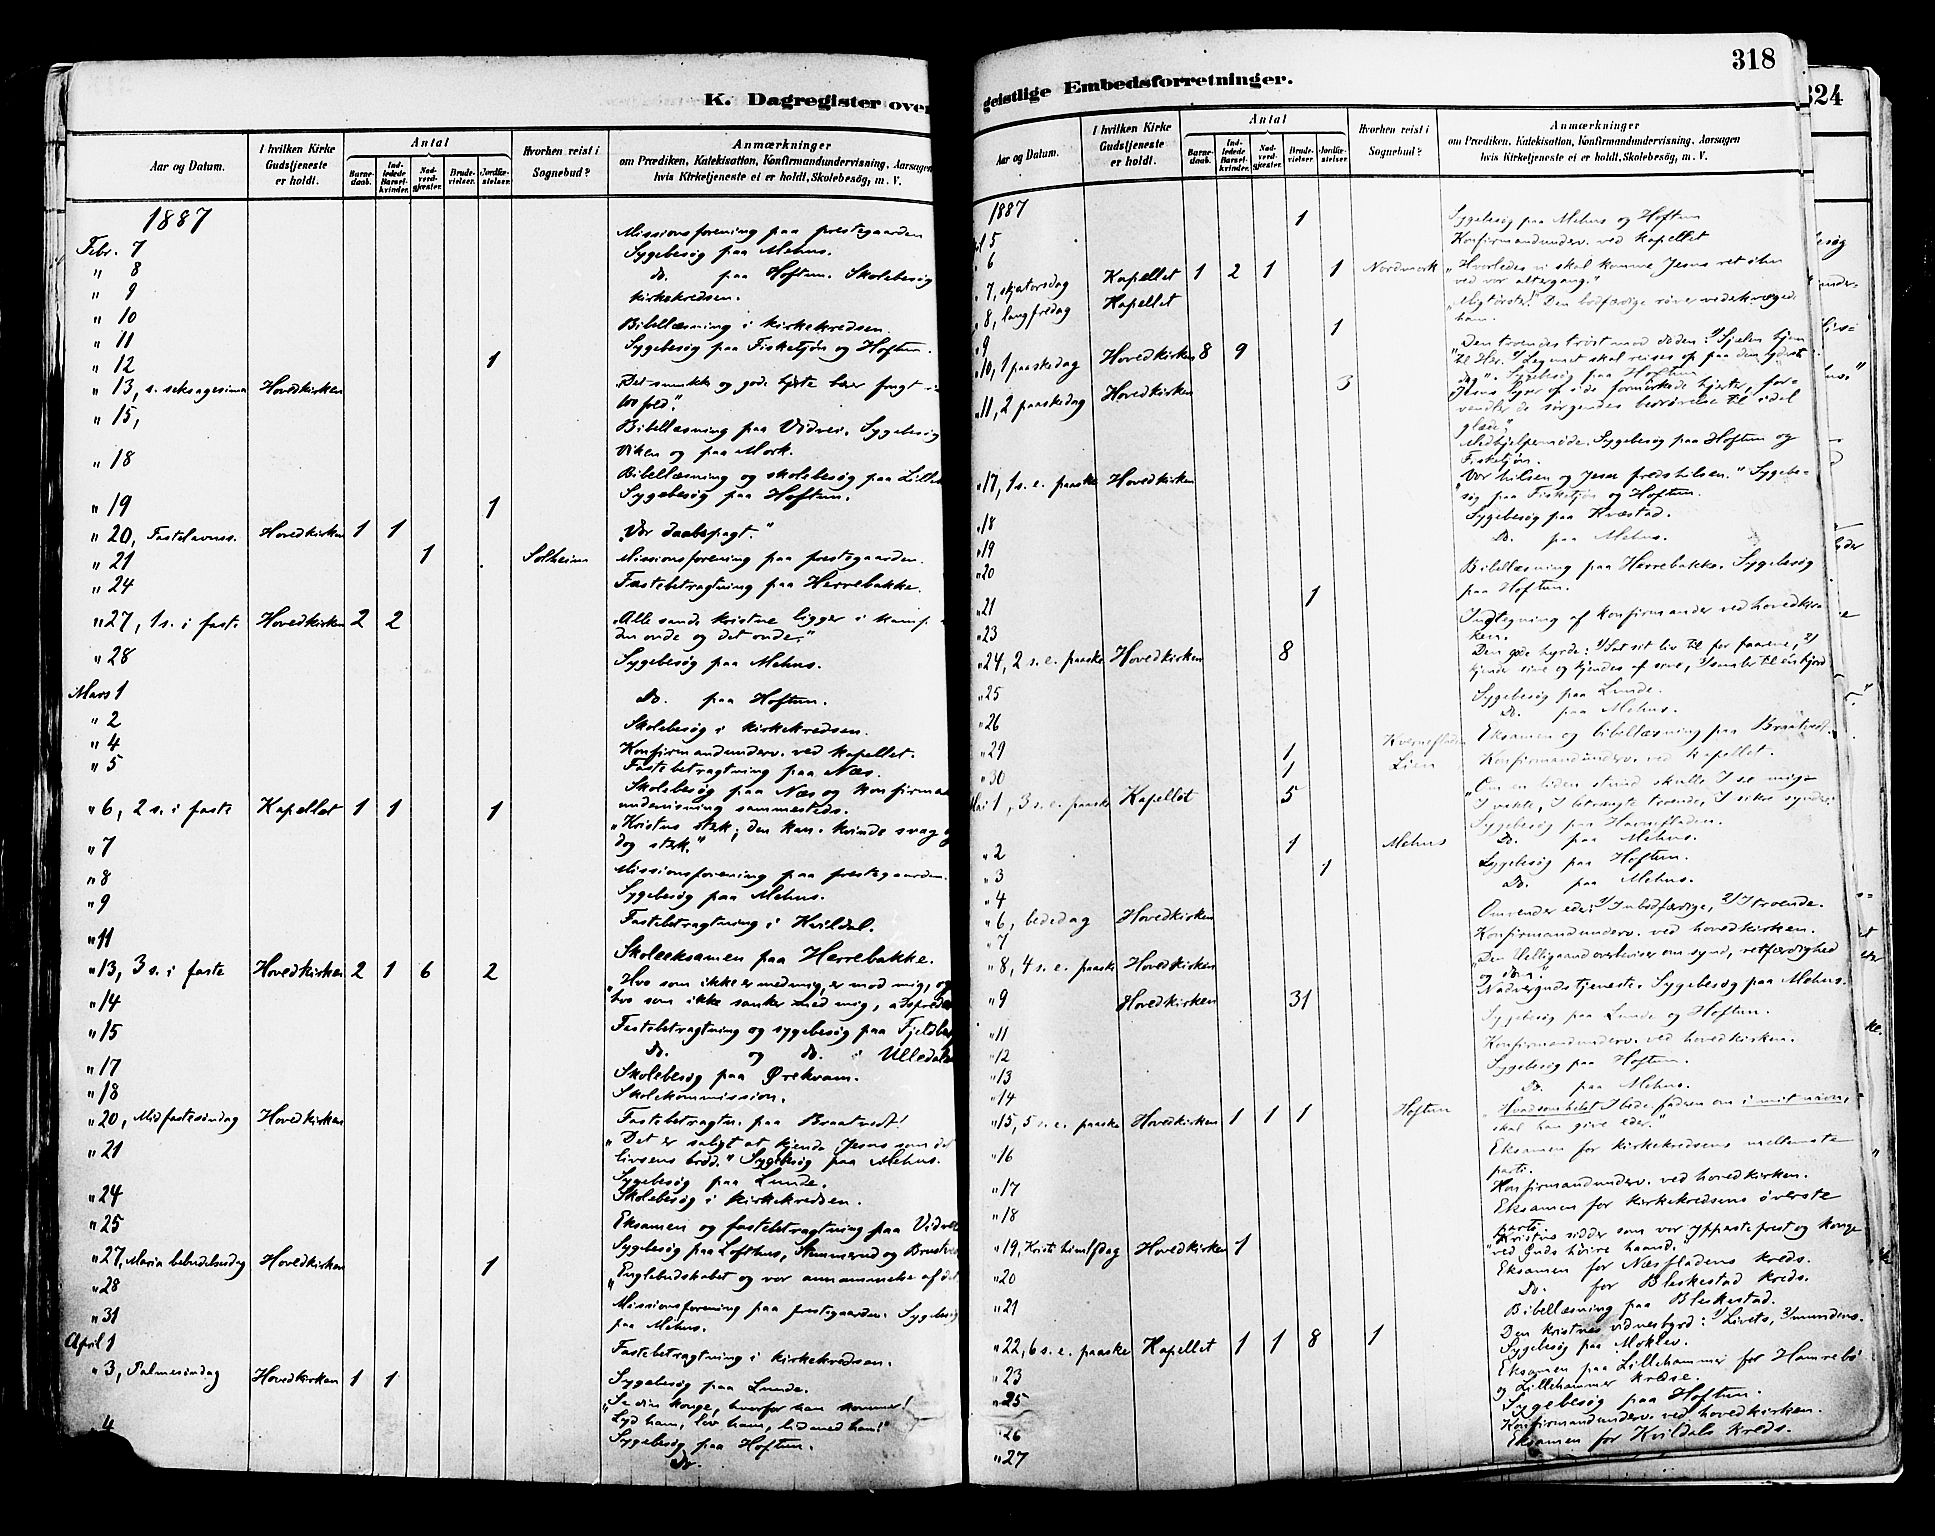 318
324
K. Dagregister over
geistlige Embedsforretninger.
Aar og Datum.
I hvilken Kirke Gudstjeneste er holdt.
Antal
Barne-daab.
Ind-ledede Barsel-kvinder.
Nad-verd-gjester.
Brude-vielser.
Jordfæ-stelser.
Hvorhen reist i Sognebud?
Anmærkninger
om Prædiken, Katekisation, Konfirmandundervisning, Aarsagen
hvis Kirketjeneste ei er holdt, Skolebesög, m. V.
1887
Missionsforening paa prestegaarden
Febr. 7 Sygebesög paa Mehus.
" 8 Do. paa Hoftun. Skolebesög
" 9 kirkekredsen.
" 10 Bibellæsning i kirkekredsen.
" 11 Sygebesög paa Fisketjön og Hoftun.
" 12 1
" 13, s. seksagesima Hovedkirken Det smukke og gode hjerte bærer frugt
" 15,
Bibellæsning paa Vidvei. Sygebesög
" 18 Viken og paa Mork.
Bibellæsning og skolebesög paa
" 19 1 Sygebesög paa Hoftun.
" 20, Fastelavnss. Hovedkirken 1 1 "Vor daabspagt."
" 21 1 Solheim Missionsforening paa prestegaarden.
" 24 Fastebetragtning paa Herrebakke.
" 27, 1 s. i faste Hovedkirken 2 2 "Alle sande kristne ligger i kamp
den onde og det onde."
" 28 Sygebesög paa Mehus.
Mars 1 Do. paa Hoftun.
" 2 Skolebesög i kirkekredsen.
" 4 Konfirmandunderv. ved kapellet.
" 5 Fastebetragtning paa Næs.
Skolebesög paa Næs og konfirmand
" 6, 2 s. i faste Kapellet 1 1 1 undervisning sammesteds.
"Kristus sterk; den kan. kvinde svag og
" 7 dog sterk."
" 8 Missionsforening paa prestegaarden.
" 9 Sygebesög paa Mehus.
" 11 Fastebetragtning i Kvildal.
Skoleeksamen paa Herrebakke.
" 13, 3 s. i faste Hovedkirken 2 1 6 2 "Hvo som ikke er med mig, er mod mig, og
" 14 hvo som ikke sanker med mig, adspreder
" 15 Fastebetragtning og sygebesög paa
Do. og do. i
" 17 Skolebesög paa Ørekvam.
" 18 Skolekommission.
" 20, Midfastesöndag Hovedkirken Fastebetragtn. paa Braatvedt!
" 21 "Det er saligt at kjende Jesus som det
livsens bröd." Sygebesög paa Mehus.
Sygebesög paa Lunde.
" 24 Skolebesög i kirkekredsen.
" 25 Eksamen og fastebetragtning paa
" 27, Maria bebudelsesdag Hovedkirken 1 Sygebesög paa Lofthus,
" 28 "Englebudskabet og vor annammelse af det
" 31 Missionsforening paa prestegaarden. Sygebesög
paa Mehus.
April 1 Fastebetragtning i kirkekredsen.
" 3, Palmesöndag Hovedkirken 1 1 Sygebesög paa Lunde.
"Se din konge, hvorfor han kommer!
Lyd ham, lev ham, lid med ham!"
" 4 Sygebesög paa Hoftun.
Do.
Aar og Datum.
I hvilken Kirke Gudstjeneste er holdt.
Antal
Barne-daab.
Ind-ledede Barsel-kvinder.
Nad-verd-gjester.
Brude-vielser.
Jordfæ-stelser.
Hvorhen reist i Sognebud?
Anmærkninger
om Prædiken, Katekisation, Konfirmandundervisning, Aarsagen
hvis Kirketjeneste ei er holdt, Skolebesög, m. V.
1887 1 Sygebesög paa Mehus og Hoftun
5 Konfirmandunderv. ved kapellet
" 6
" 7, skjærtorsdag Kapellet 1 2 1 1 Nordmork "Hvorledes vi skal komme Jesus ret ihu
ved vor altergang."
" 8, langfredag Kapellet "Mig törster!" Den bodfærdige röver
ham.
" 9 1
" 10, 1 paaskedag Hovedkirken 8 9 "Den troendes tröst mod döden: 1) Sjælen hjem
til Her. 2) Legemet skal reises op paa den yderste
dag". Sygebesög paa Hoftun
" 11, 2 paaskedag Hovedkirken 3
vendler de sörgendes bedrövelse til idel
glæde."
Medhjelpermöde. Sygebesög paa Hoftun og
Fisketjön.
" 17, 1 s. e. paaske Hovedkirken "Vor hilsen og Jesu fredshilsen." Sygebe-
sög paa Fisketjön og Hoftun.
" 18 Sygebesög paa Kvæstad.
" 19 Do. paa Mehus.
" 20 Bibellæsning paa Herrebakke. Sygebesög
paa Hoftun.
" 21 1
Indtegning af konfirmander ved hovedkir-
" 23 ken.
" 24, 2 s. e. paaske Hovedkirken 8 Den gode hyrde: 1) Sat sit liv til for faarene, 2)
kjender sine og kjendes af sine, 3) samler til én hjord
" 25 Sygebesög paa Lunde.
" 26 Do. paa Mehus.
Eksamen og bibellæsning paa Braatvedt.
" 29 1 Kvernefladen Konfirmandunderv. ved kapellet.
" 30 1 Lien "Om en liden stund skulle I se mig
Mai 1, 3 s. e. paaske Kapellet 5
Sygebesög paa Havnefladen.
" 2 1 Mehus Do. paa Mehus.
" 3 1 Sygebesög paa Hoftun.
" 4 Do. paa Mehus.
" 6, bededag Hovedkirken Omvender eder: 1) I ubodfærdige, 2) I troende.
" 7 Konfirmandunderv. ved hovedkirken.
" 8, 4 s. e. paaske Hovedkirken "Den Helligaand overbeviser om synd, retfærdighed
og dom."
" 9 Hovedkirken 31 Nadverguds tjeneste. Sygebesög paa Mehus.
Sygebesög paa Lunde og Hoftun.
" 11 Konfirmandunderv. ved hovedkirken.
" 12 Sygebesög paa Hoftun.
" 13 Do. paa Mehus.
" 14
" 15, 5 s. e. paaske Hovedkirken 1 1 1 Hoftun "Hvadsomhelst I bede fadren om i mit navn,
skal han give eder."
" 16 Eksamen for kirkekredsens mellemste
parti.
" 17 Konfirmandunderv. ved hovedkirken.
" 18 Eksamen for kirkekredsens överste
parti.
" 19, Kristi himlfsdag Hovedkirken 1 "Kristus sidder som vor ypperste prest og konge
ved Guds höire haand."
" 20 Eksamen for Næsfladens kreds.
" 21 Do. for Bleskestad kreds.
Bibellæsning paa Bleskestad.
" 22, 6 s. e. paaske Kapellet 1 1 8 1 Den kristnes vidnesbyrd: 1) Livets, 2) mundens.
Sygebesög paa Moklev.
" 23 Eksamen paa Lillehammer for Hamrebö
og Lillehammer kredse.
" 25 Sygebesög paa Hoftun.
" 26 Konfirmandunderv. ved hovedkirken.
" 27 Eksamen for Kvildals kreds.